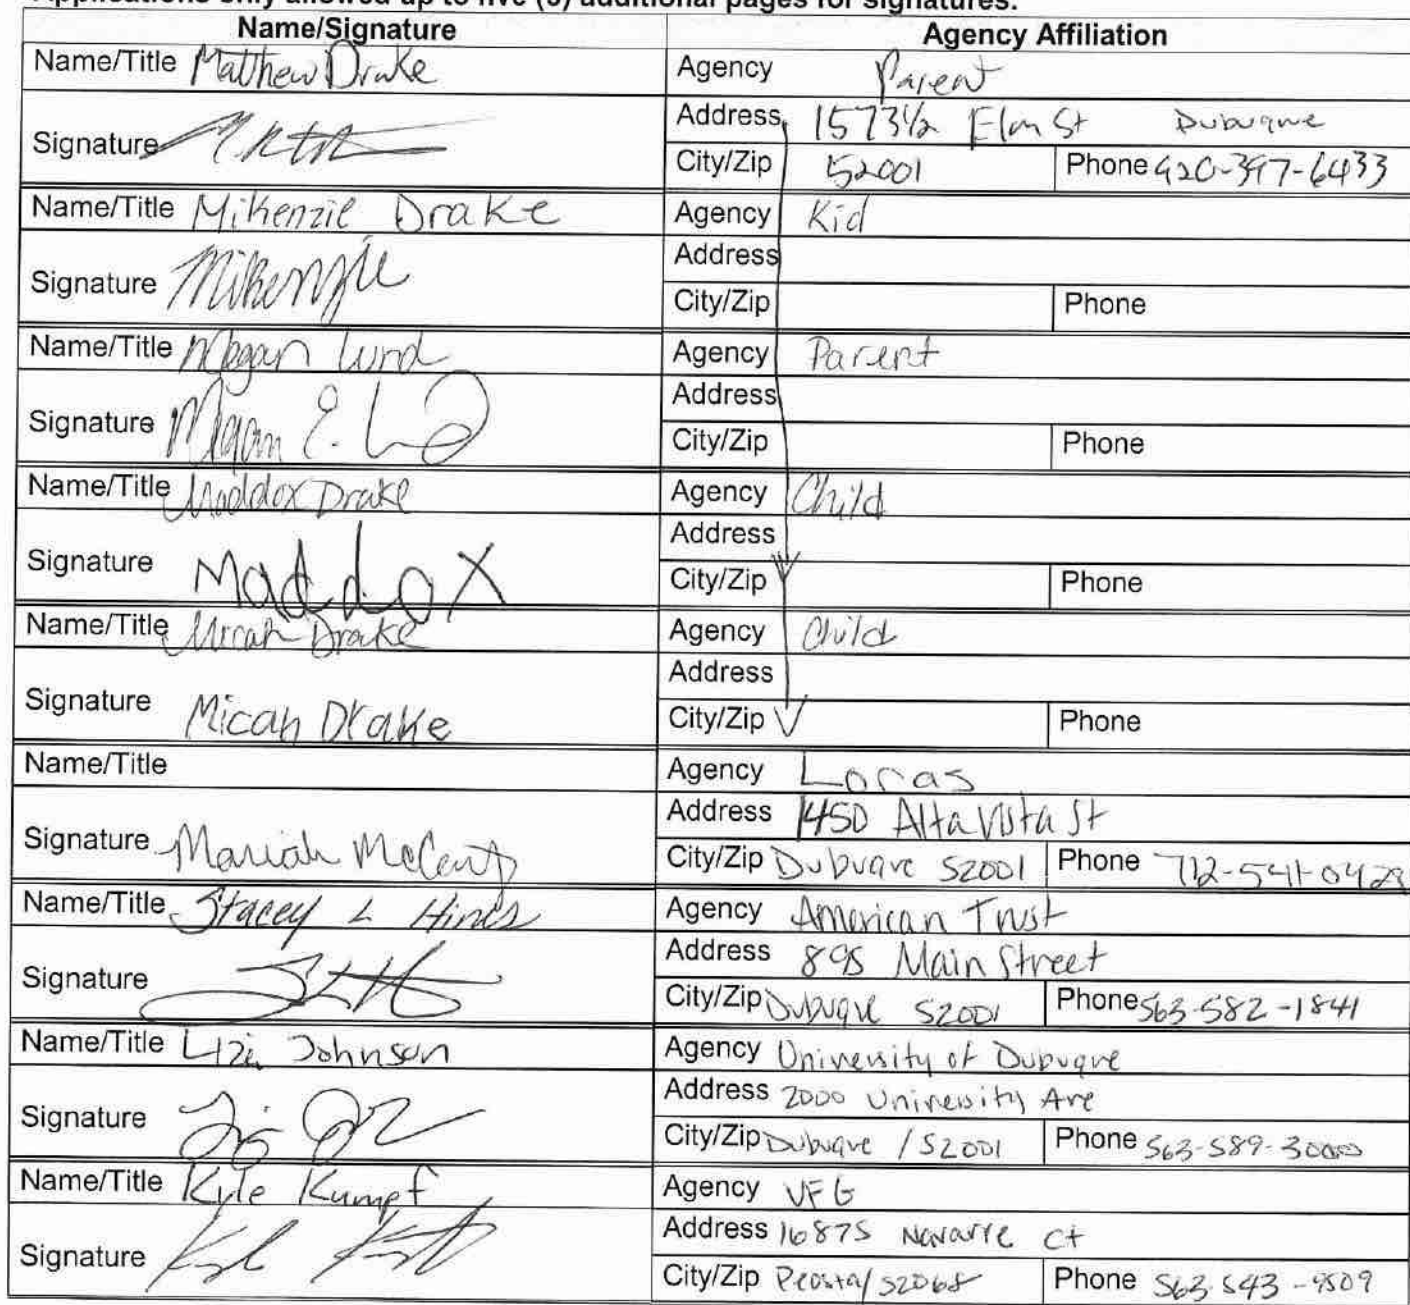 Applications only allowed up to five (5) additional pages for signatures.
Name/Signature Agency Affiliation
Name/Title Matthew Drake Agency Parent
Signature Address 1573½ Elm St Dubuque
City/Zip 52001 Phone 920-397-6433
Name/Title Mikenzie Drake Agency Kid
Signature Mikenzie Address
City/Zip Phone
Name/Title Megan Lund Agency Parent
Signature Megan E. Address
City/Zip Phone
Name/Title Maddox Drake Agency Child
Signature Maddox Address
City/Zip Phone
Name/Title Micah Drake Agency Child
Signature Micah Drake Address
City/Zip Phone
Name/Title Agency Loras
Signature Mariah Address 1450 Alta Vista St
City/Zip Dubuque 52001 Phone 712-541-0429
Name/Title Stacey L Hines Agency American Trust
Signature Address 895 Main Street
City/Zip Dubuque 52001 Phone 563-582-1841
Name/Title Lizi Johnson Agency University of Dubuque
Signature Address 2000 University Ave
City/Zip Dubuque / 52001 Phone 563-589-3000
Name/Title Kyle Kumpf Agency VFG
Signature Address 16875 Navarre Ct
City/Zip Peosta/52068 Phone 563 543-9509